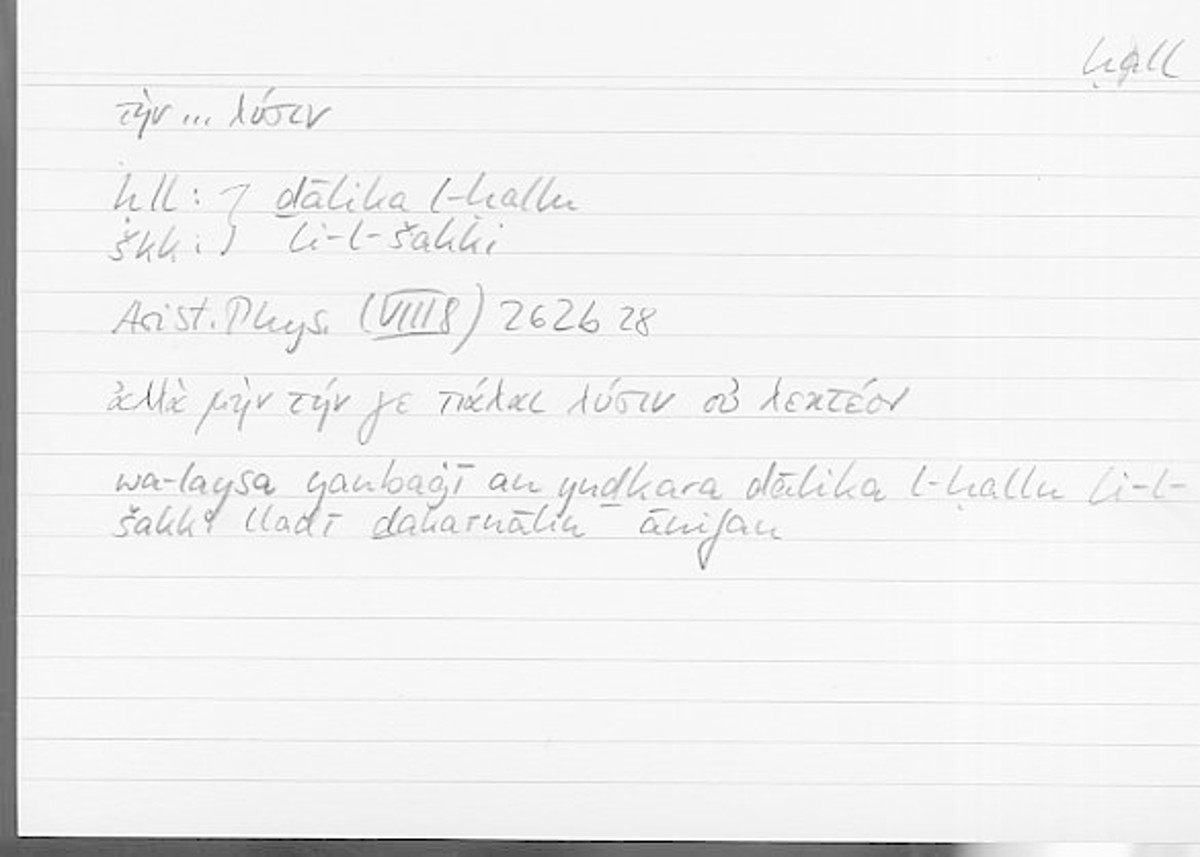 ḥall
τὴν ... λύσιν
ḥll: } ḏālika l-ḥallu
škk: } li-l-šakki
Arist. Phys. (VIII 8) 262b 28
ἀλλὰ μὴν τήν γε πάλαι λύσιν οὐ λεκτέον
wa-laysa yanbaġī an yuḏkara ḏālika l-ḥallu li-l-
šakki llaḏī ḏakarnāhu ānifan